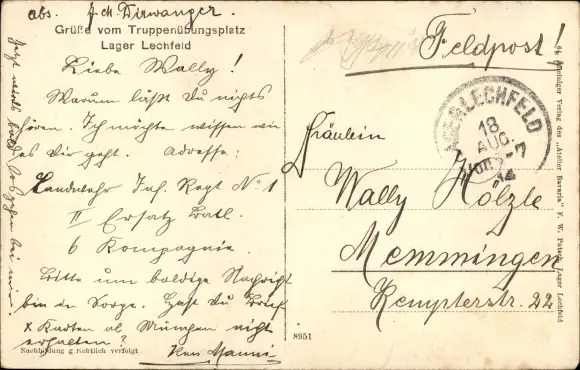 abs. J. M. Dirwanger.
Grüße vom Truppenübungsplatz
Lager Lechfeld
Liebe Wally!
Warum läßt Du nichts
hören. Ich möchte wissen wie
es Dir geht. Adresse:
Landwehr Inf. Regt No 1
II Ersatz Batl.
6 Kompagnie.
Bitte um baldige Nachricht
bin in Sorge. Hast Du Brief
x Karten ab München nicht
erhalten?
Nachbildung gerichtlich verfolgt
Jetzt wirds bald losgehen bei mir.
Feldpost!
LAGER LECHFELD
18
AUG
14
Fräulein
Wally Hölzle
Memmingen
Kempterstr. 22
8951
Verlag des "Atelier Bavaria" F. W. Putsch, Lager Lechfeld